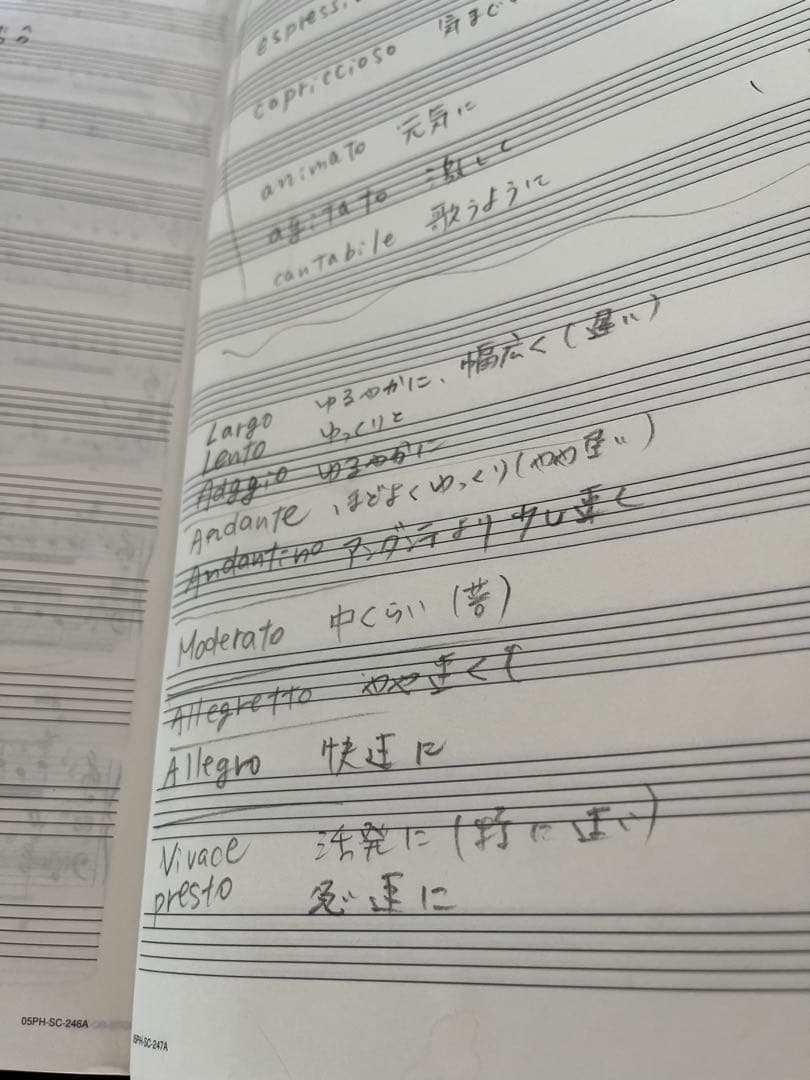 espressi
capriccioso 気まぐ
animato 元気に
agitato 激して
cantabile 歌うように
Largo ゆるやかに、幅広く(遅い)
Lento ゆっくりと
Adagio ゆるやかに
Andante ほどよくゆっくり(やや遅い)
Andantino アンダンテより少し速く
Moderato 中くらい(普)
Allegretto やや速く
Allegro 快速に
Vivace 活発に(特に速い)
presto 急速に
05PH-SC-246A
05PH-SC-247A